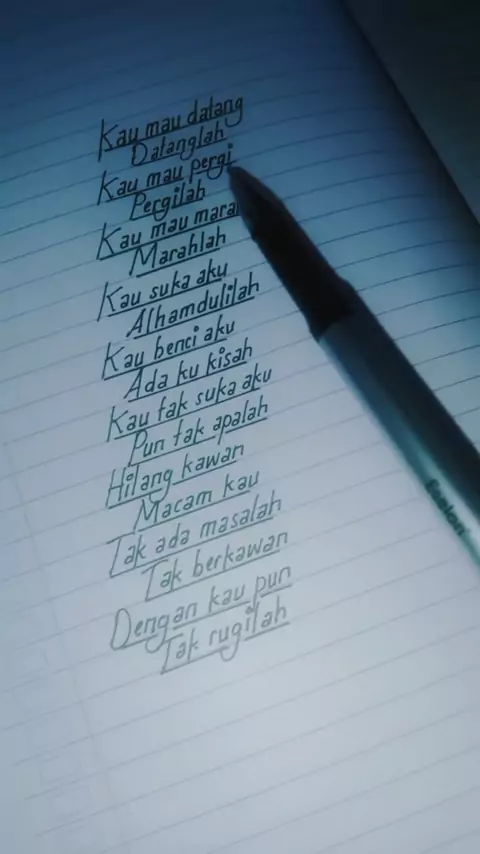 Kau mau datang
Datanglah
Kau mau pergi
Pergilah
Kau mau mara
Marahlah
Kau suka aku
Alhamdulilah
Kau benci aku
Ada ku kisah
Kau tak suka aku
Pun tak apalah
Hilang kawan
Macam kau
Tak ada masalah
Tak berkawan
Dengan kau pun
Tak rugilah